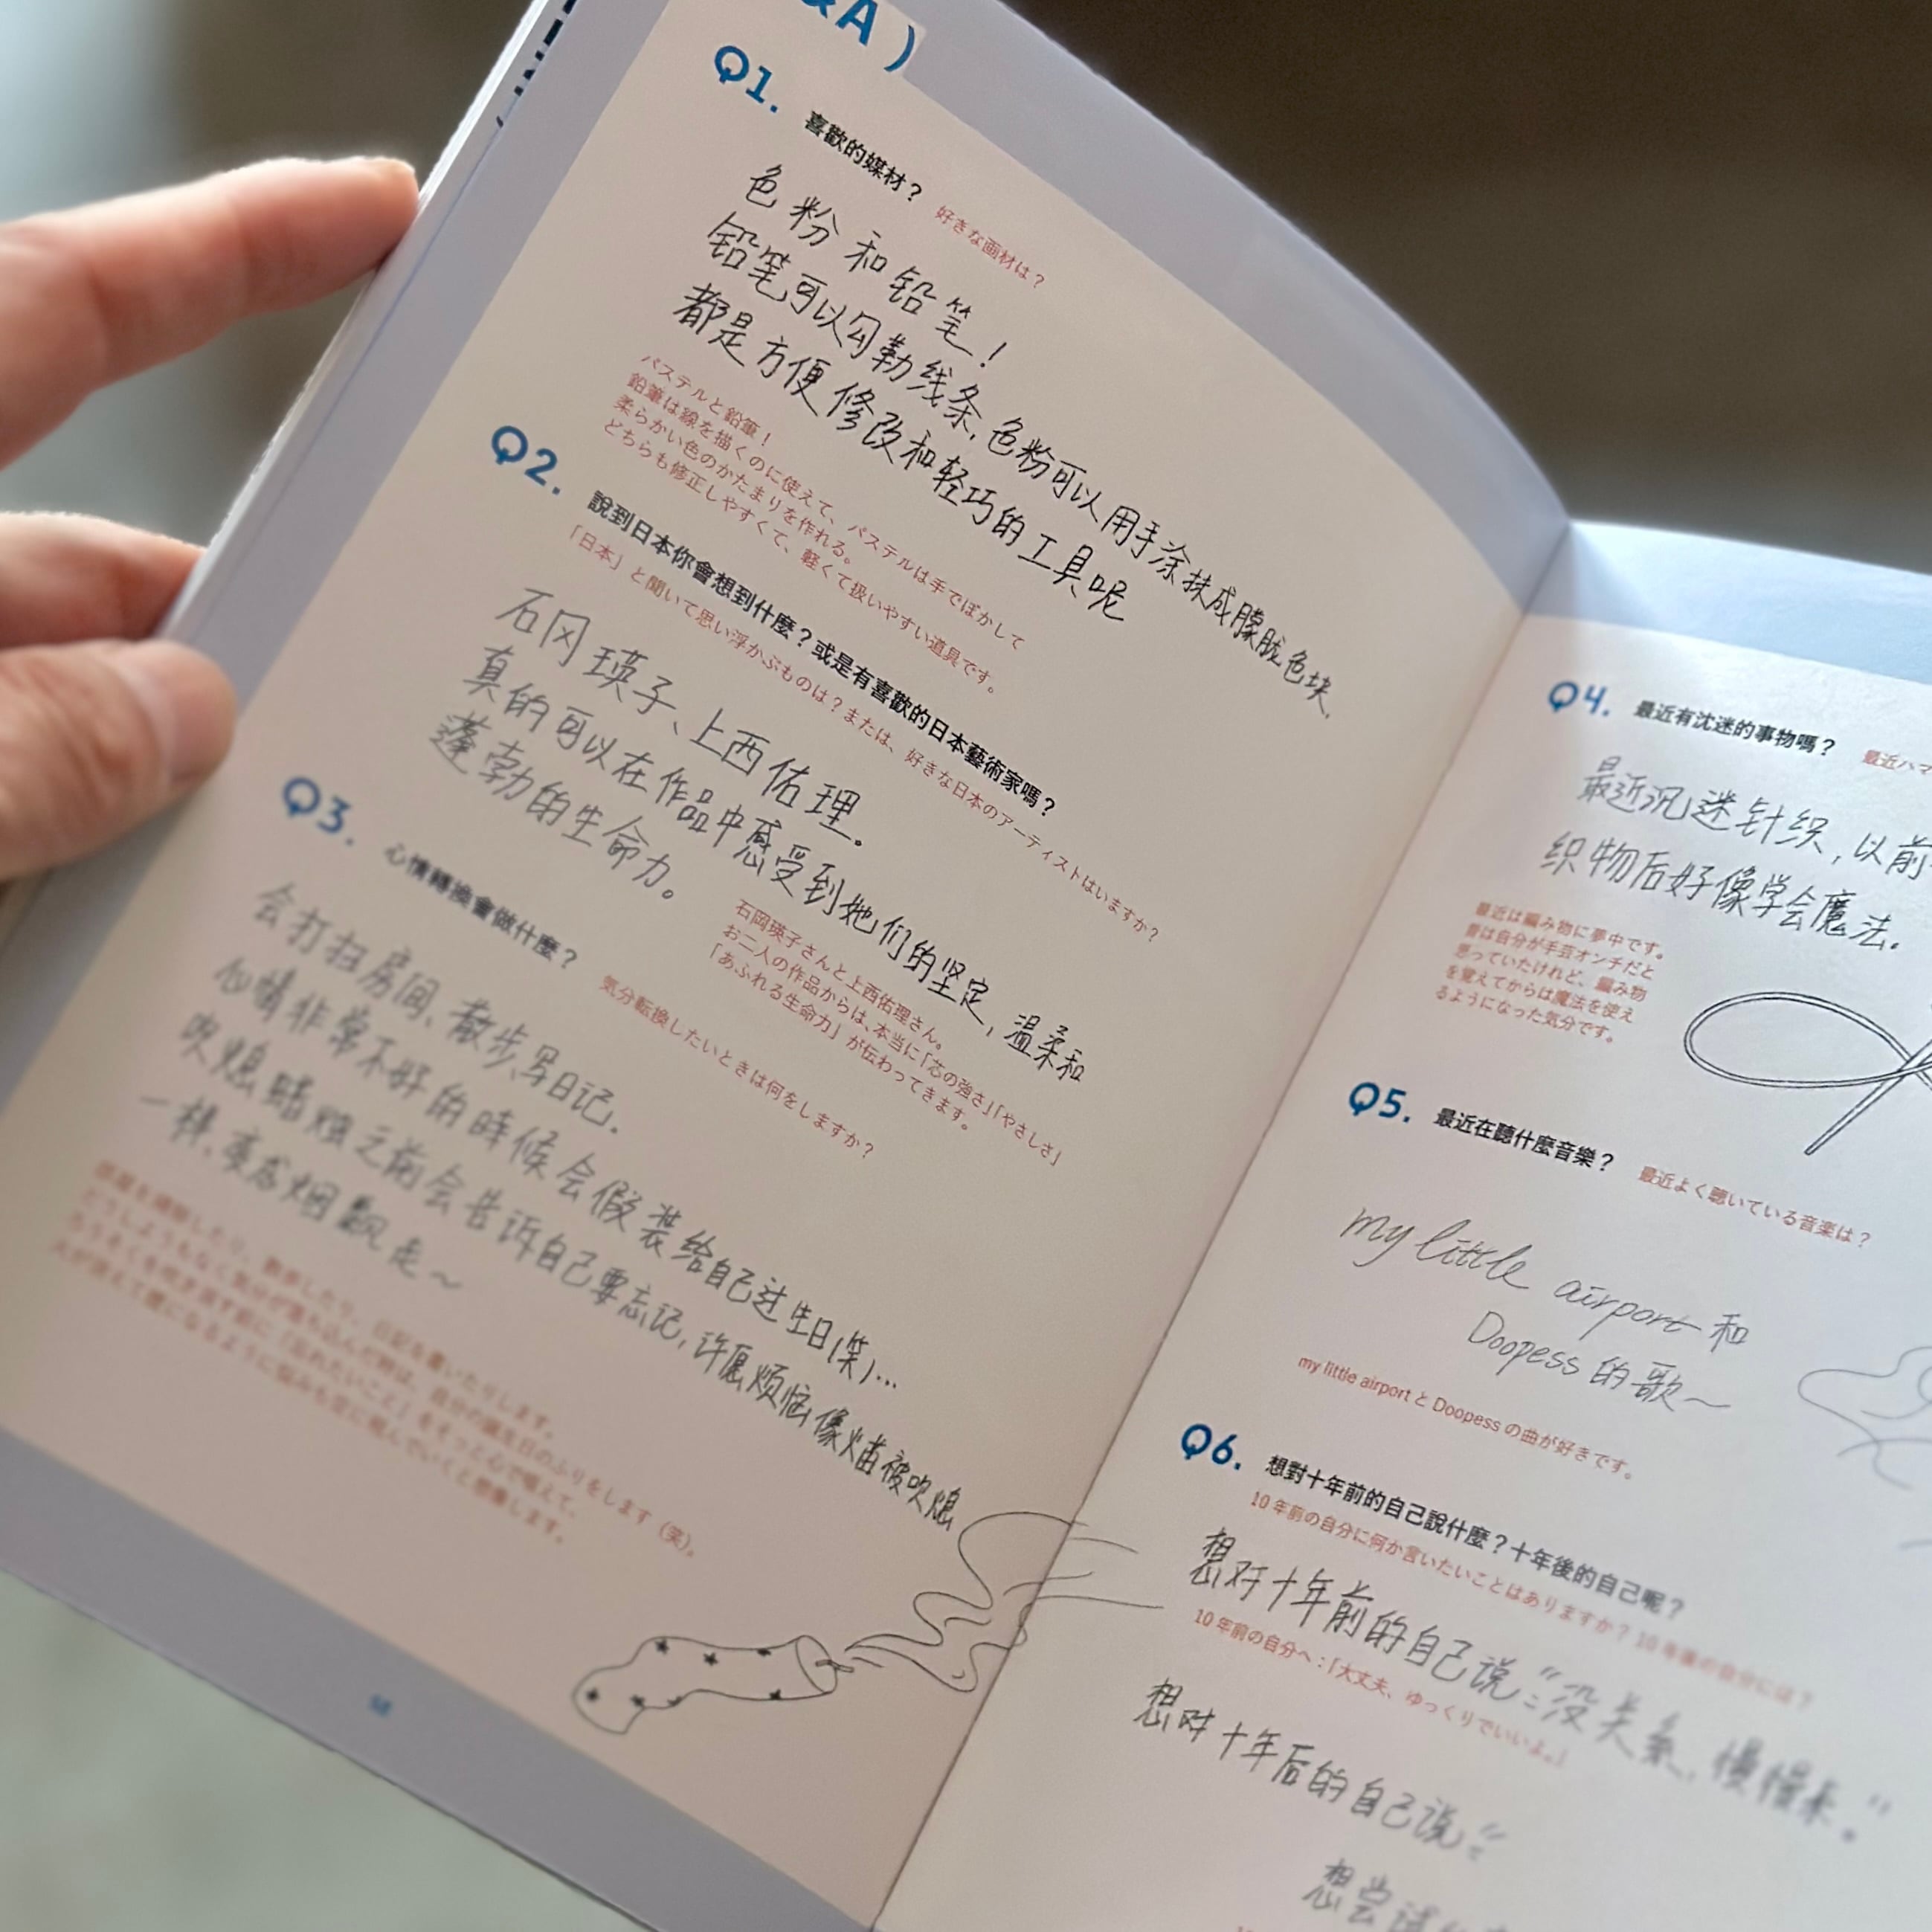 &A )
Q1. 喜歡的媒材？ 好きな画材は？
色粉和铅笔！
铅笔可以勾勒线条，色粉可以用手涂抹成朦胧色块，
都是方便修改和轻巧的工具呢
パステルと鉛筆！
鉛筆は線を描くのに使えて、パステルは手でぼかして
柔らかい色のかたまりを作れる。
どちらも修正しやすくて、軽くて扱いやすい道具です。
Q2. 說到日本你會想到什麼？或是有喜歡的日本藝術家嗎？
「日本」と聞いて思い浮かぶものは？または、好きな日本のアーティストはいますか？
石冈瑛子、上西佑理。
真的可以在作品中感受到她们的坚定，温柔和
蓬勃的生命力。
石岡瑛子さんと上西佑理さん。
お二人の作品からは、本当に「芯の強さ」「やさしさ」
「あふれる生命力」が伝わってきます。
Q3. 心情轉換會做什麼？ 気分転換したいときは何をしますか？
会打扫房间、散步、写日记.
心情非常不好的時候会假装给自己过生日(笑)...
吹熄蜡烛之前会告诉自己要忘记，许愿烦恼像烛被吹熄
一样，变成烟飘走～
部屋を掃除したり、散歩したり、日記を書いたりします。
どうしようもなく気分が落ち込んだ時は、自分の誕生日のふりをします（笑）。
ろうそくを吹き消す前に「忘れたいこと」をそっと心で唱えて、
火が消えて煙になるように悩みも空に飛んでいくと想像します。
58
Q4. 最近有沈迷的事物嗎？ 最近ハマ
最近沉迷针织，以前
织物后好像学会魔法.
最近は編み物に夢中です。
昔は自分が手芸オンチだと
思っていたけれど、編み物
を覚えてからは魔法を使え
るようになった気分です。
Q5. 最近在聽什麼音樂？ 最近よく聴いている音楽は？
my little airport 和
Doopess 的歌～
my little airport と Doopess の曲が好きです。
Q6. 想對十年前的自己說什麼？十年後的自己呢？
10 年前の自分に何か言いたいことはありますか？10 年後の自分には？
想对十年前的自己说：“没关系，慢慢来。”
10 年前の自分へ：「大丈夫、ゆっくりでいいよ。」
想对十年后的自己说：“
想尝试